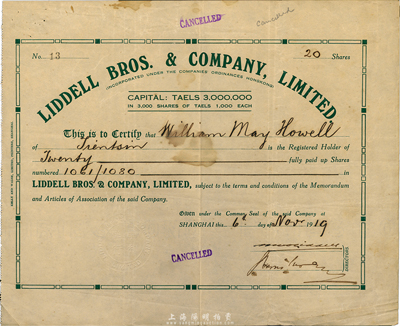 CANCELLED
Cancelled
No. 13
20 Shares
LIDDELL BROS. & COMPANY, LIMITED
(INCORPORATED UNDER THE COMPANIES ORDINANCES HONGKONG)
CAPITAL: TAELS 3,000,000
IN 3,000 SHARES OF TAELS 1,000 EACH
This is to Certify that William May Howell
of Tientsin is the Registered Holder of
Twenty fully paid up Shares
numbered 1061/1080 in
LIDDELL BROS. & COMPANY, LIMITED, subject to the terms and conditions of the Memorandum
and Articles of Association of the said Company.
Given under the Common Seal of the said Company at
SHANGHAI this 6th day of Nov. 1919
CANCELLED
DIRECTORS
上海阳明拍卖